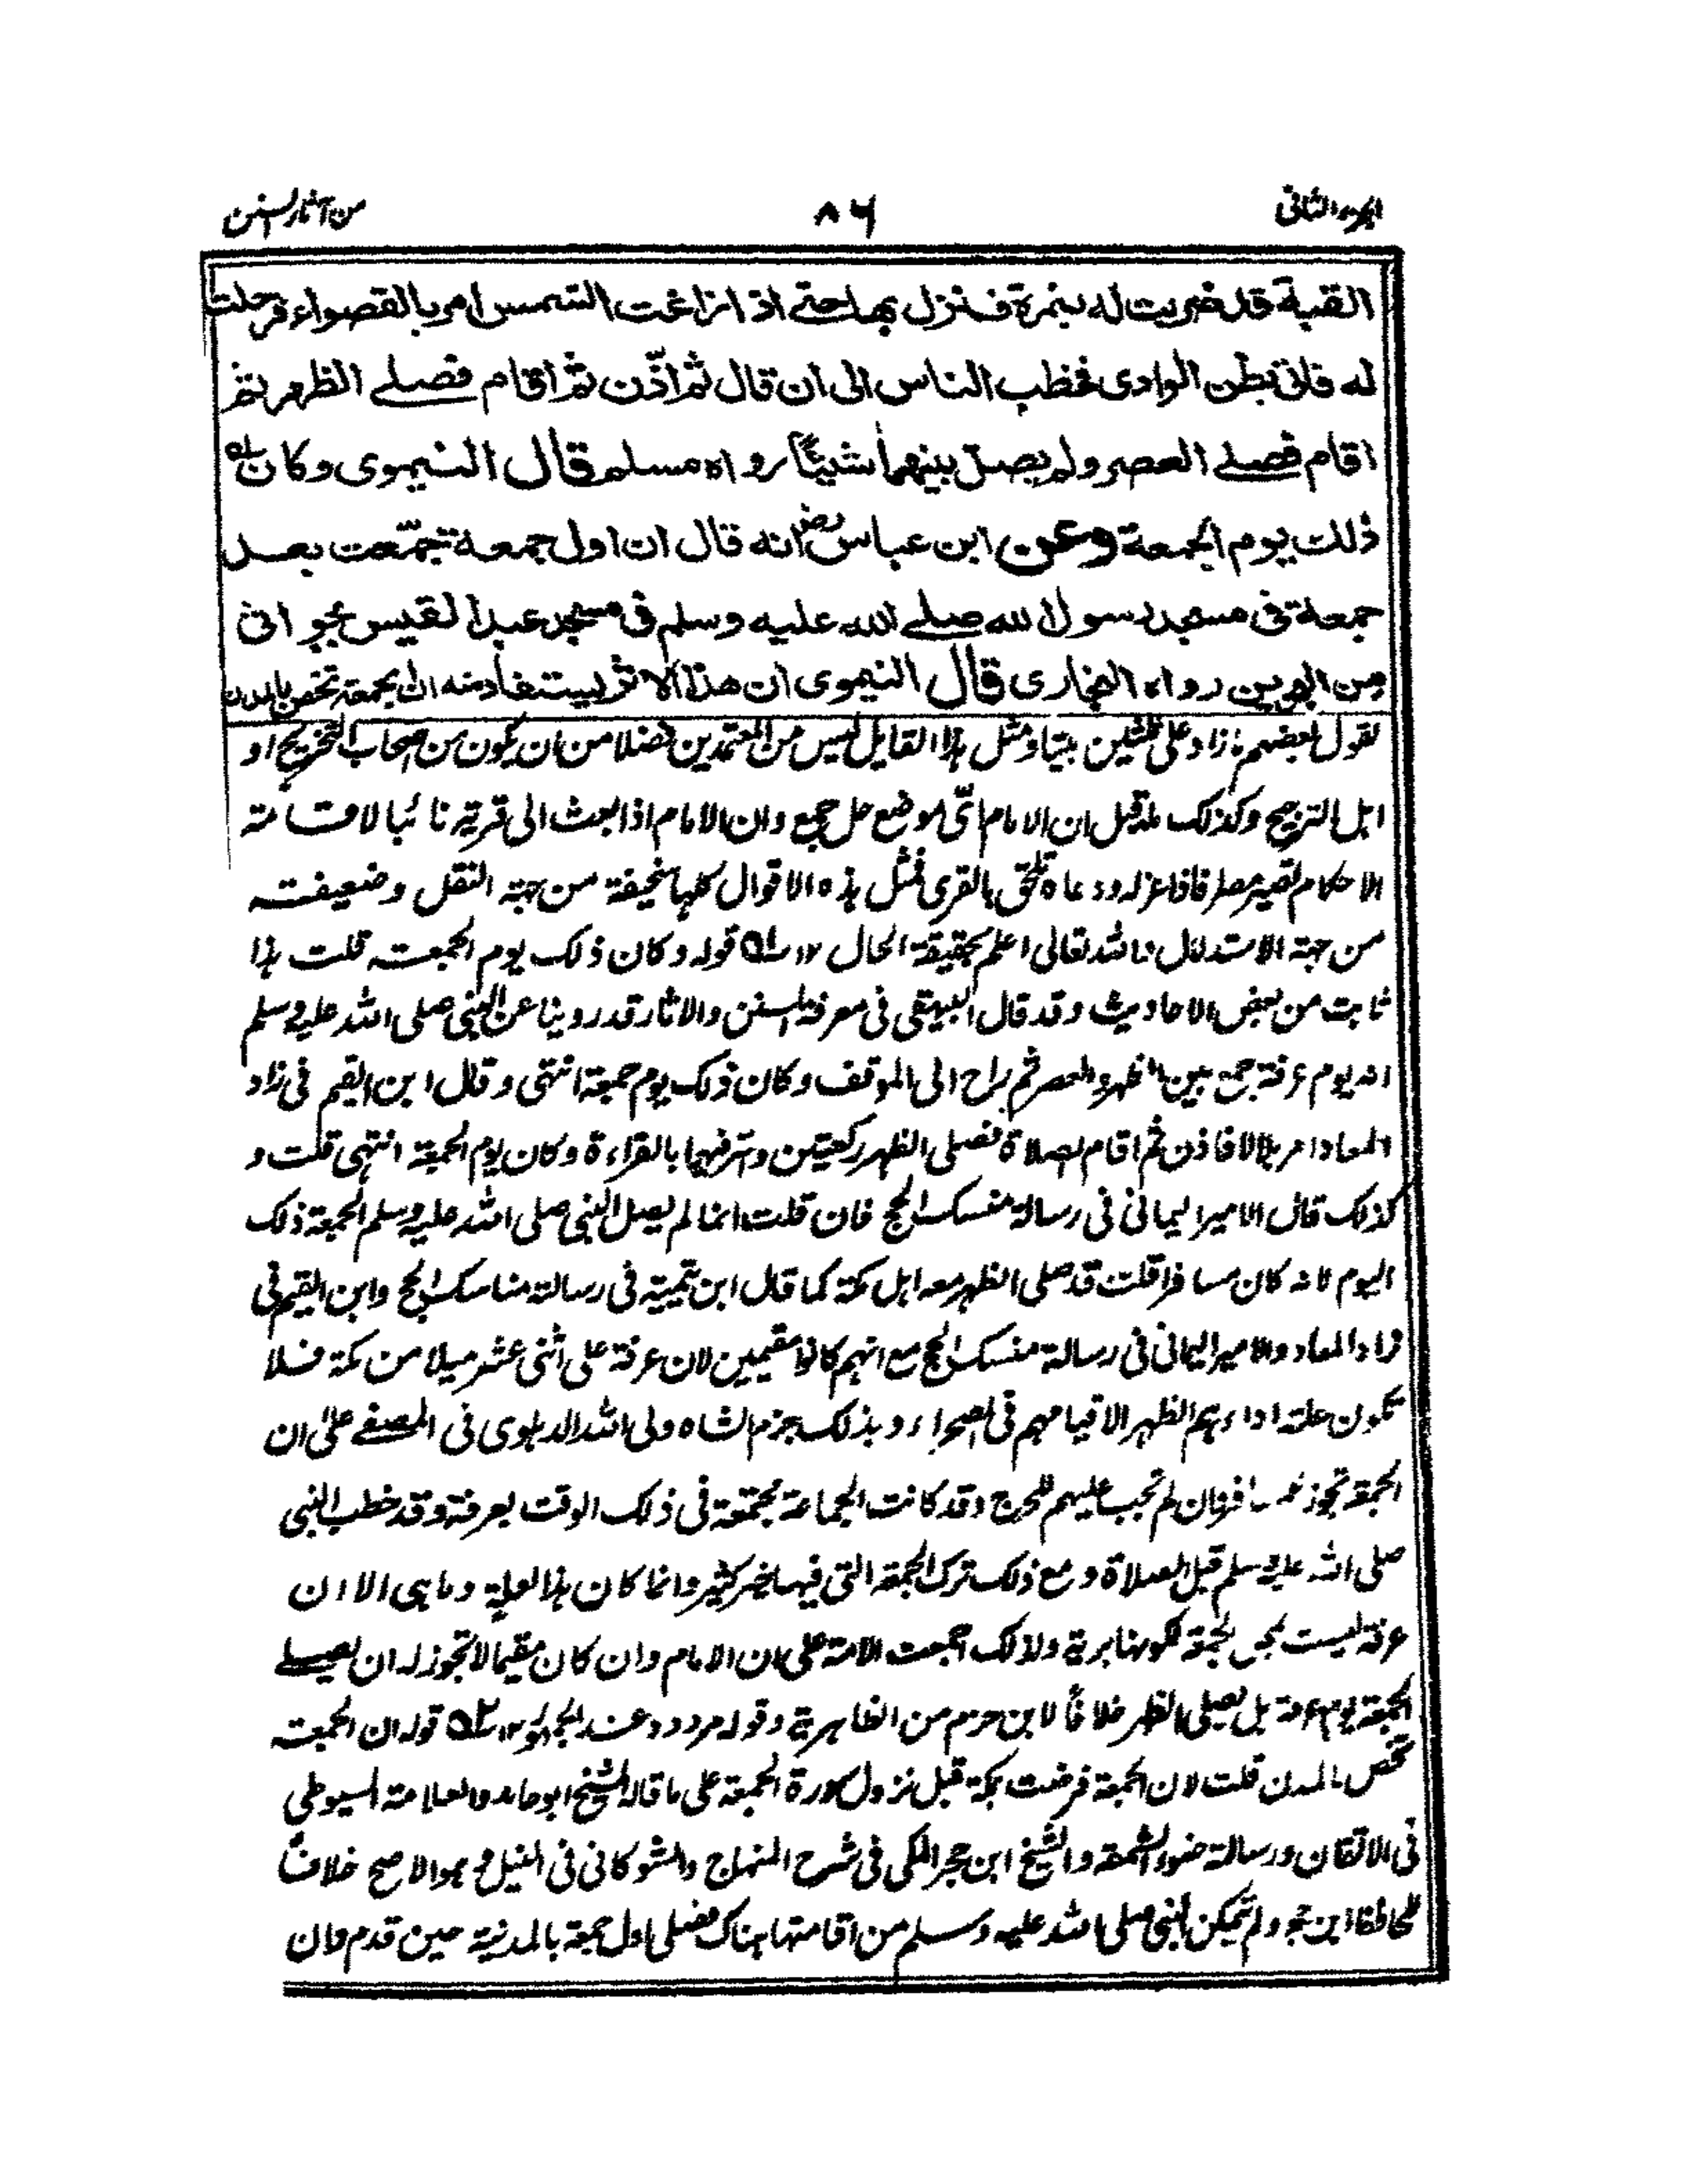 الجزء الثانى ٨٦ من آثار السنن
القبة قد ضربت له بنمرة فنزل بها حتے اذا زاغت الشمس امر بالقصواء فرحلت
له فاتى بطن الوادى فخطب الناس الى ان قال ثم اذّن ثم اقام فصلے الظهر ثم
اقام فصلے العصر ولم يصل بينهما شيئًا رواه مسلم قال النيموى وكان
ذلك يوم الجمعة وعن ابن عباس رضـ انه قال ان اول جمعة جمّعت بعد
جمعة فى مسجد رسول الله صلے الله عليه وسلم فى مسجد عبد القيس بجواثى
من البحرين رواه البخارى قال النيموى ان هذا الاثر يستفاد منه ان الجمعة تختص بالمدن
لقول بعضهم ما زاد على ثلثين بيتا ومثل هذا القايل ليس من المعتمدين فضلا من ان يكون من اصحاب التخريج او
اهل الترجيح وكذلك ما قيل ان الامام اىّ موضع حل جمع وان الامام اذا بعث الى قرية نائبا لاقامة
الاحكام تصير مصر فاذا عزله ودعاه تلحق بالقرى فمثل هذه الاقوال كلها سخيفة من جهة النقل وضعيفة
من جهة الاستدلال والله تعالى اعلم بحقيقة الحال ١٢ ٥١ قوله وكان ذلك يوم الجمعة قلت هذا
ثابت من بعض الاحاديث وقد قال البيهقى فى معرفة السنن والاثار قد روينا عن النبى صلى الله عليه وسلم
انه يوم عرفة جمع بين الظهر والعصر ثم راح الى الموقف وكان ذلك يوم جمعة انتهى وقال ابن القيم فى زاد
المعاد امر بلالا فاذن ثم اقام الصلاة فصلى الظهر ركعتين واسر فيهما بالقراءة وكان يوم الجمعة انتهى قلت و
كذلك قال الامير اليمانى فى رسالة منسك الحج فان قلت انما لم يصل النبى صلى الله عليه وسلم الجمعة ذلك
اليوم لانه كان مسافرا قلت قد صلى الظهر معه اهل مكة كما قال ابن تيمية فى رسالة مناسك الحج وابن القيم فى
زاد المعاد والامير اليمانى فى رسالة منسك الحج مع انهم كانوا مقيمين لان عرفة على اثنى عشر ميلا من مكة فلا
تكون علة اداءهم الظهر الا قيامهم فى الصحراء وبذلك جزم الشاه ولى الله الدهلوى فى المصفے علىٰ ان
الجمعة تجوز للمسافر وان لم تجب عليهم للحرج وقد كانت الجماعة مجتمعة فى ذلك الوقت بعرفة وقد خطب النبى
صلى الله عليه وسلم قبل الصلاة و مع ذلك ترك الجمعة التى فيها خير كثير وانما كان هذا لعلة وما هى الا ان
عرفة ليست بمحل لجمعة لكونها برية ولذلك اجمعت الامة على ان الامام وان كان مقيما لا تجوز له ان يصلے
الجمعة يوم عرفة بل يصلى الظهر خلافًا لابن حزم من الظاهرية وقوله مردود عند الجمهور ١٢ ٥٢ قوله ان الجمعة
تختص بالمدن قلت لان الجمعة فرضت بمكة قبل نزول سورة الجمعة على ما قاله الشيخ ابو حامد والعلامة السيوطى
فى الاتقان ورسالة ضوء الشمعة والشيخ ابن حجر المكى فى شرح المنهاج والشوكانى فى النيل وهو الاصح خلافًا
للحافظ ابن حجر ولم يتمكن النبى صلى الله عليه وسلم من اقامتها هناك فصلى اول جمعة بالمدينة حين قدم وان